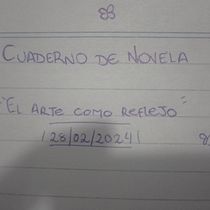 CUADERNO DE NOVELA
"EL ARTE COMO REFLEJO"
|28/02/2024|